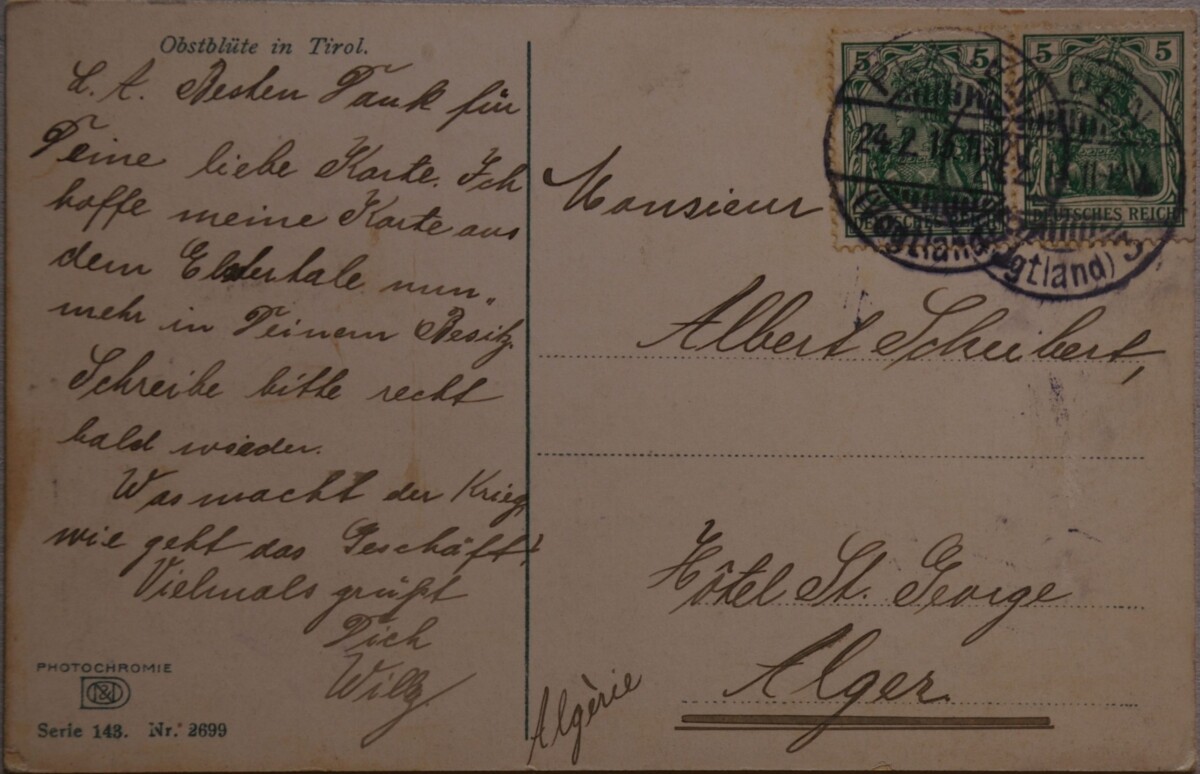 Obstblüte in Tirol.
L. A. Besten Dank für
Deine liebe Karte. Ich
hoffe meine Karte aus
dem Elstertale nun„
mehr in Deinem Besitz.
Schreibe bitte recht
bald wieder.
Was macht der Krieg,
wie geht das Geschäft?
Vielmals grüßt
Dich
Willy.
PHOTOCHROMIE
Serie 143. Nr. 2699
5 5
5 5
DEUTSCHES REICH
24.2. 13. 11-12
(Vogtland)
(Vogtland)
Monsieur
Albert Scheibert,
Hôtel St. George
Alger.
Algèrie